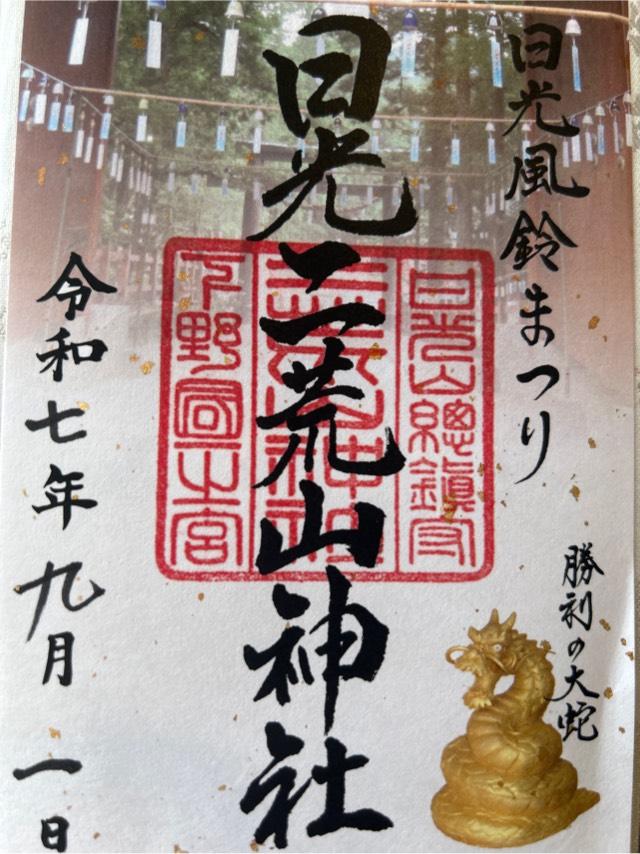 日光風鈴まつり
勝利の大蛇
日光二荒山神社
日光山總鎮守
下野國一之宮
令和七年九月一日